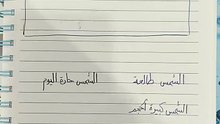 الشمس طالعة الشمس حارة اليوم
الشمس كبيرة